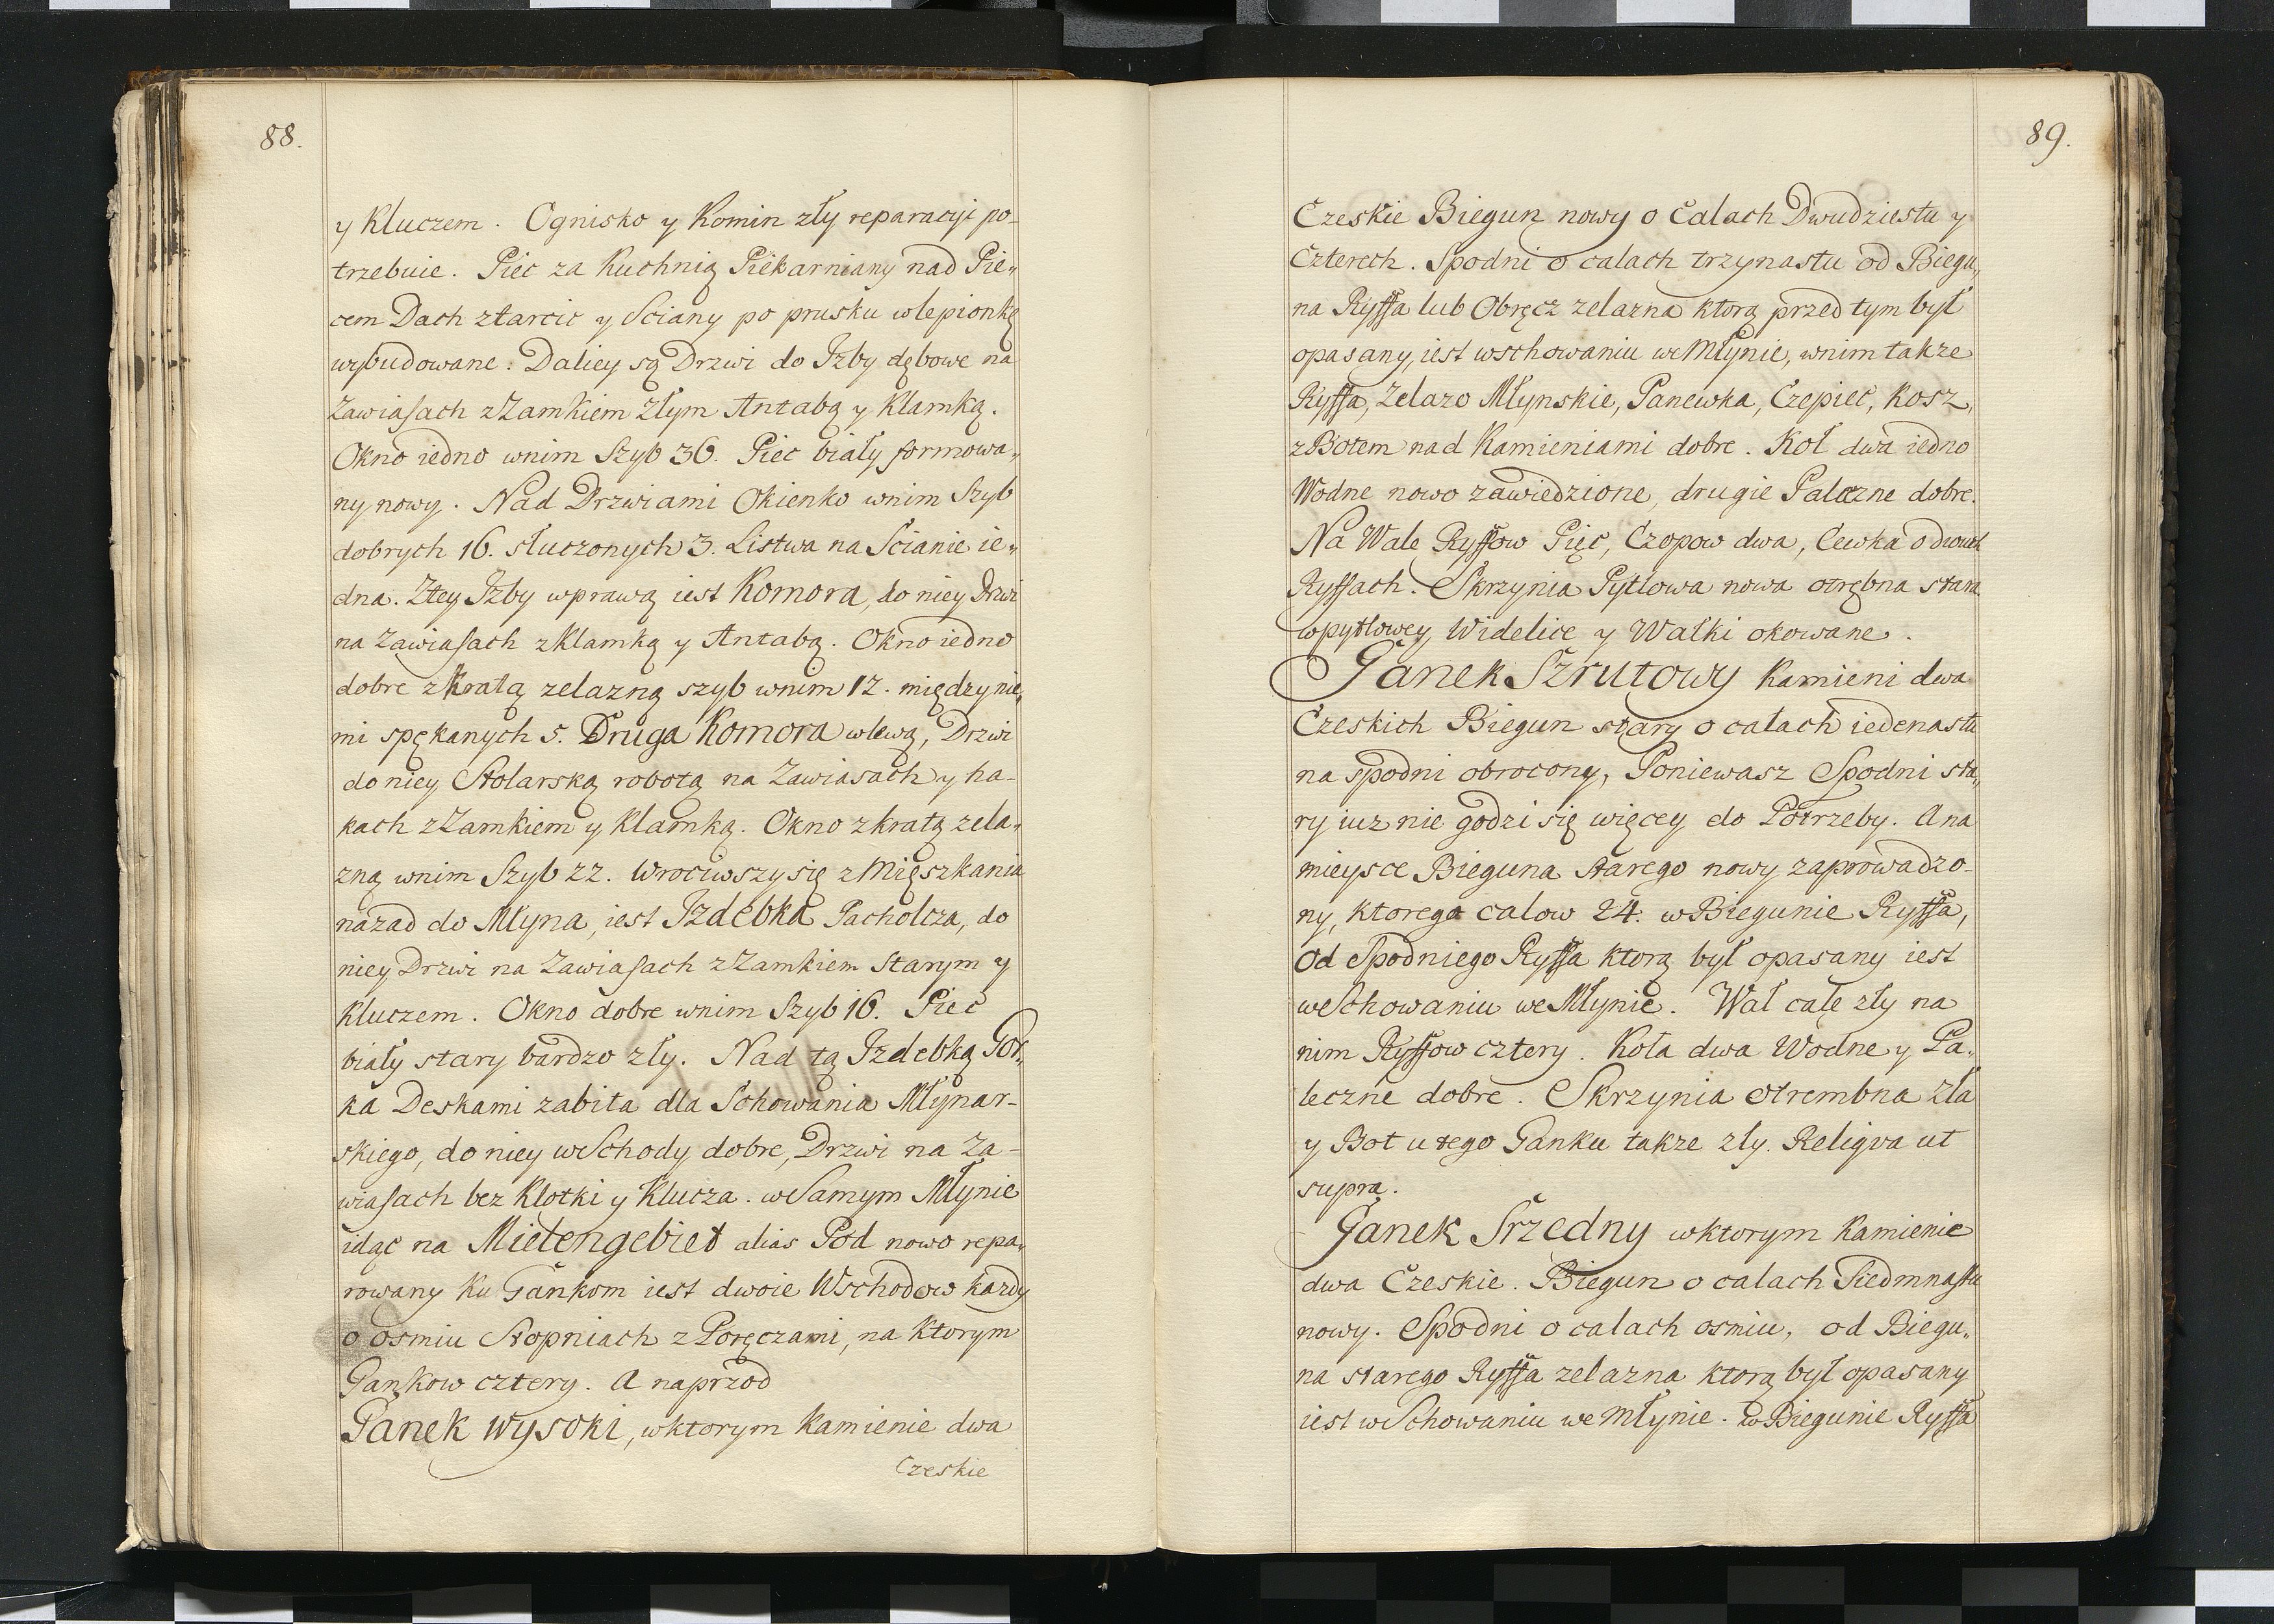 88.
y Kluczem. Ognisko y Komin zły reparacyi po-
trzebuie. Piec za Kuchnią Piekarniany nad Pie„
cem Dach ztarcic y Sciany po prusku wlepionkę
wybudowane. Daliey są Drzwi do Izby dębowe na
Zawiasach z Zamkiem złym Antabą y Klamką.
Okno iedno wnim Szyb 36. Piec biały formowa„
ny nowy. Nad Drzwiami Okienko wnim Szyb
dobrych 16. stuczonych 3. Listwa na Scianie ie„
dna. Ztey Izby wprawą iest Komora, do niey Drzwi
na Zawiasach z Klamką y Antabą. Okno iedno
dobre z Kratą zelazną szyb wnim 12. między nie„
mi spękanych 5. Druga Komora wlewą, Drzwi
do niey Stolarską robotą na Zawiasach y ha-
kach z Zamkiem y Klamką. Okno z kratą zela„
zną wnim Szyb 22. Wrociwszy się z Mięszkania
nazad do Młyna, iest Izdebka Pacholcza, do
niey Drzwi na Zawiasach z Zamkiem Starym y
Kluczem. Okno dobre wnim Szyb 16. Piec
biały stary bardzo zły. Nad tą Izdebką Gór„
ka Deskami zabita dla Schowania Młynar-
skiego, do niey wSchody dobre, Drzwi na Za-
wiasach bez Klotki y Klucza. wSamym Młynie
idąc na Mietengebiet alias Pód nowo repa„
rowany Ku Gankom iest dwoie Wschodow kazdy
o osmiu Stopniach z Poręczami, na Ktorym
Gankow cztery. A naprzod
Ganek Wysoki, wktorym Kamienie dwa
Czeskie
89.
Czeskie Biegun nowy o Calach Dwudziestu y
Czterech. Spodni o calach trzynastu od Biegu„
na Ryffa lub Obręcz zelazna ktorą przed tym był
opasany, iest wschowaniu we Młynie, wnim takze
Ryffa, Zelazo Młynskie, Panewka, Czepiec, Kosz,
z Botem nad Kamieniami dobre. Koł dwa iedno
Wodne nowo zawiedzione, drugie Paleczne dobre.
Na Wale Ryffow Pięć, Czopow dwa, Cewka o dwuch
Ryffach. Skrzynia Pytlowa nowa otrębna stara.
wpytlowey, Widelice y Wałki okowane.
Ganek Szrutowy Kamieni dwa
Czeskich Biegun stary o całach iedenastu
na spodni obrocony, Poniewasz Spodni sta„
ry iuz nie godzi się więcey do Potrzeby. A na
mieysce Bieguna starego nowy zaprowadzo-
ny, ktorego calow 24. w Biegunie Ryffa,
Od Spodniego Ryffa ktorą był opasany iest
wSchowaniu we Młynie. Wał całę zły na
nim Ryffow cztery. Koła dwa Wodne y Pa„
leczne dobre. Skrzynia Otrembna zła
y Bot u tego Ganku takze zły. Religva ut
supra.
Ganek Srzedny wktorym Kamienie
dwa Czeskie. Biegun o calach Siedmnastu
nowy. Spodni o calach osmiu, od Biegu„
na starego Ryffa zelazna ktorą był opasany
iest wSchowaniu we Młynie. w Biegunie Ryffa